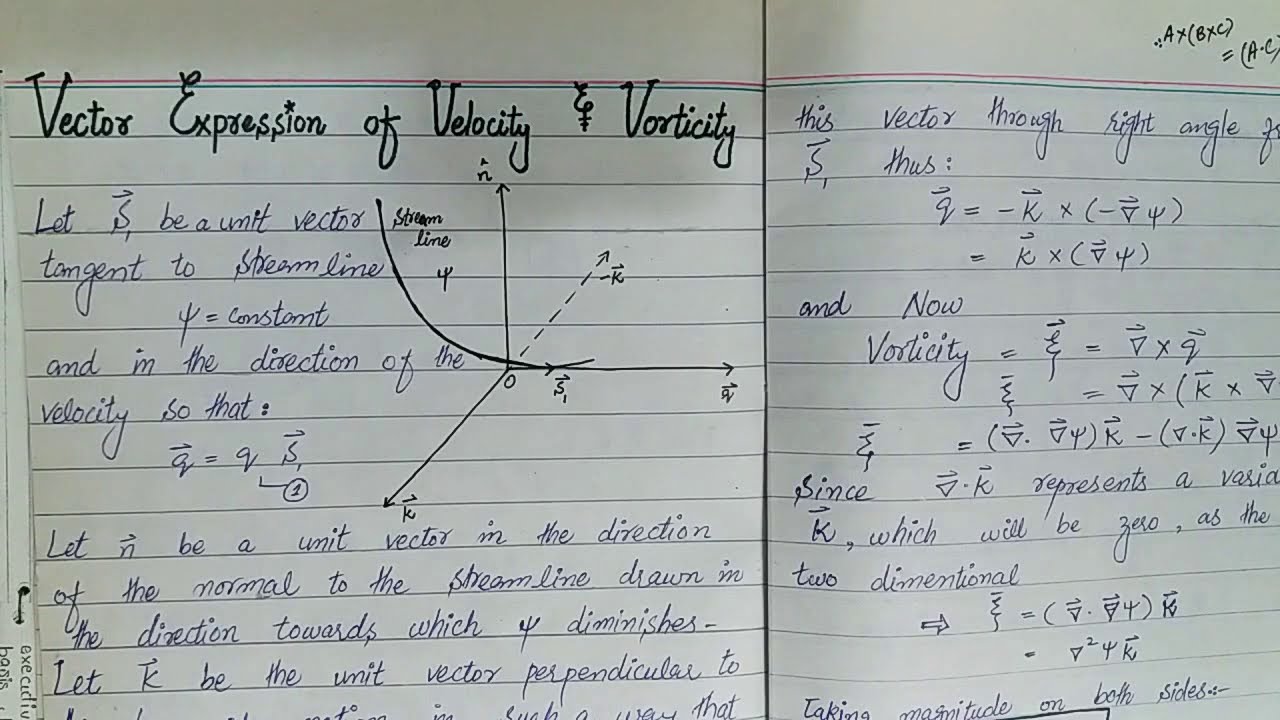 Vector Expression of Velocity & Vorticity
Let S⃗₁ be a unit vector
tangent to streamline
ψ = constant
and in the direction of the
velocity so that:
q⃗ = q S⃗₁
①
n̂
Stream
line
ψ
-k⃗
O
S⃗₁
q⃗
k⃗
Let n⃗ be a unit vector in the direction
of the normal to the streamline drawn in
the direction towards which ψ diminishes-
Let k⃗ be the unit vector perpendicular to
in such a way that
∴ A×(B×C)
= (A·C)
this vector through right angle
S⃗₁ thus:
q⃗ = -k⃗ × (-∇⃗ψ)
= k⃗ × (∇⃗ψ)
and Now
Vorticity = ξ⃗ = ∇⃗ × q⃗
ξ⃗ = ∇⃗ × (k⃗ × ∇
ξ⃗ = (∇⃗. ∇⃗ψ)k⃗ - (∇.k⃗) ∇⃗ψ
Since ∇⃗.k⃗ represents a
k⃗, which will be zero, as the
two dimentional
⇒ ξ⃗ = (∇⃗. ∇⃗ψ) k⃗
= ∇²ψ k⃗
Taking magnitude on both sides:-